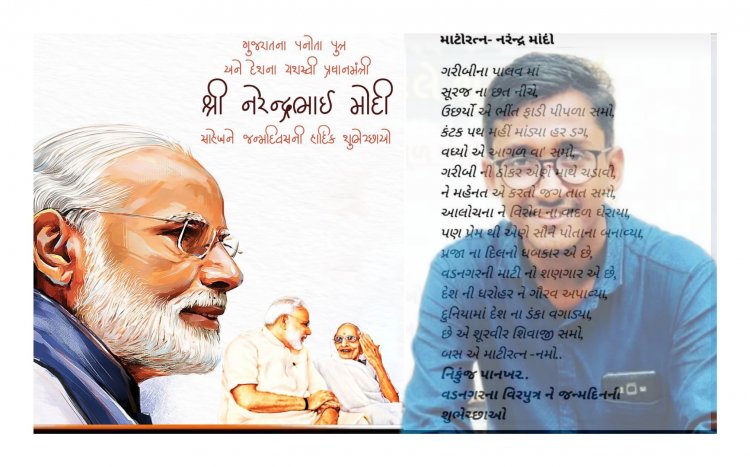 ગુજરાતના પનોતા પુત્ર
અને દેશના યશસ્વી પ્રધાનમંત્રી
શ્રી નરેન્દ્રભાઈ મોદી
સાહેબને જન્મદિવસની હાર્દિક શુભેચ્છાઓ
માટીરત્ન- નરેન્દ્ર માંદી
ગરીબીના પાલવ માં
સૂરજ ના છત નીચે,
ઉછર્યો એ ભીંત ફાડી પીપળા સમો,
કંટક પથ મહીં માંડ્યા હર ડગ,
વધ્યો એ આગળ વા' સમો,
ગરીબી ની ઠોકર એણે માથે ચડાવી,
ને મહેનત એ કરતો જગ તાત સમો,
આલોચના ને વિરોધ ના વાદળ ઘેરાયા,
પણ પ્રેમ થી એણે સૌને પોતાના બનાવ્યા,
પ્રજા ના દિલનો ધબકાર એ છે,
વડનગરની માટી નો શણગાર એ છે,
દેશ ની ધરોહર ને ગૌરવ અપાવ્યા,
દુનિયામાં દેશ ના ડંકા વગાડ્યા,
છે એ શૂરવીર શિવાજી સમો,
બસ એ માટીરત્ન -નમો..
નિકુંજ પાનખર..
વડનગરના વિરપુત્ર ને જન્મદિનની
શુભેચ્છાઓ